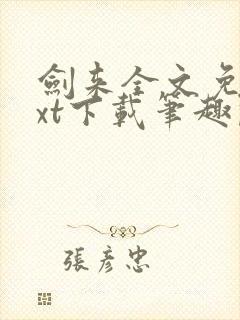 劍来全文免
xt下載筆趣
張彦忠